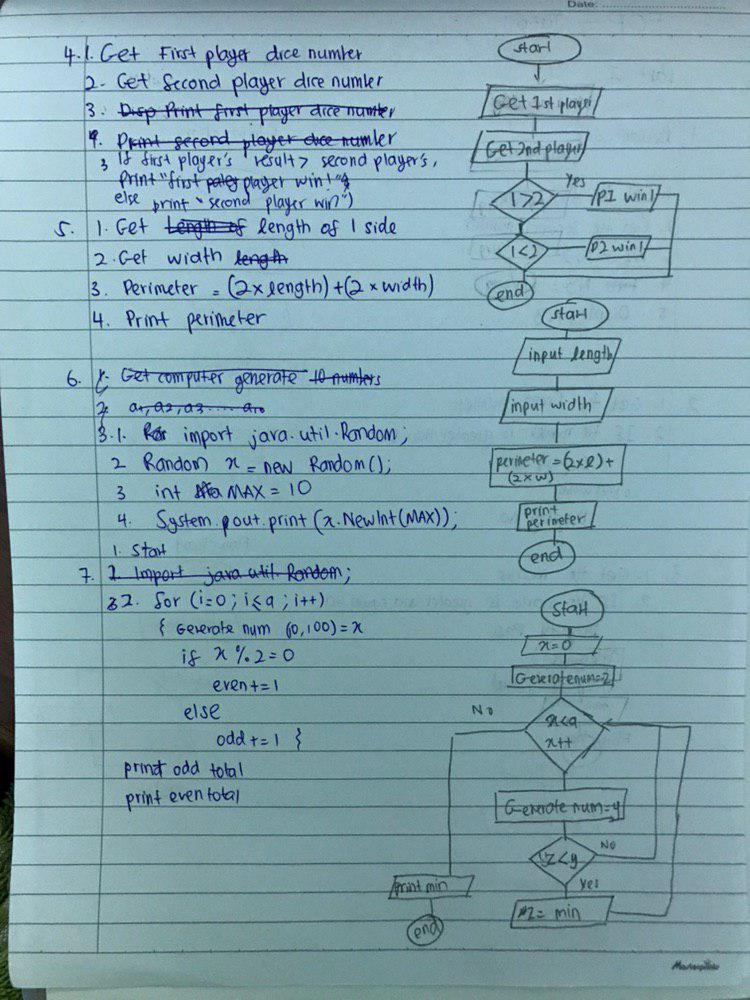 Date:
4. 1. Get First player dice number
2. Get Second player dice number
3. Disp Print first player dice number
4. Print second player dice number
3 If first player's result > second player's,
Print "first player win!"
else print "second player win")
5. 1. Get Length of length of 1 side
2. Get width length
3. Perimeter = (2 x length) + (2 x width)
4. Print perimeter
6. Get computer generate 10 numbers
2. a1, a2, a3 .... a10
3.1. import java.util.Random;
2 Random x = new Random();
3 int MAX = 10
4. System.pout.print (x.NewInt(MAX));
1. Start
7. 2. Import java util. Random;
2. for (i=0; i≤a; i++)
{ Generate num (0,100) = x
if x % 2 = 0
even += 1
else
odd += 1 }
print odd total
print even total
start
Get 1st player
Get 2nd player
1>2
Yes
P1 win!
1<2
P2 win!
end
start
input length
input width
perimeter = (2xl) +
(2xw)
print
perimeter
end
Start
x=0
Generate num=z
No
x<a
x++
Generate num=y
z<y
No
Yes
z = min
print min
end